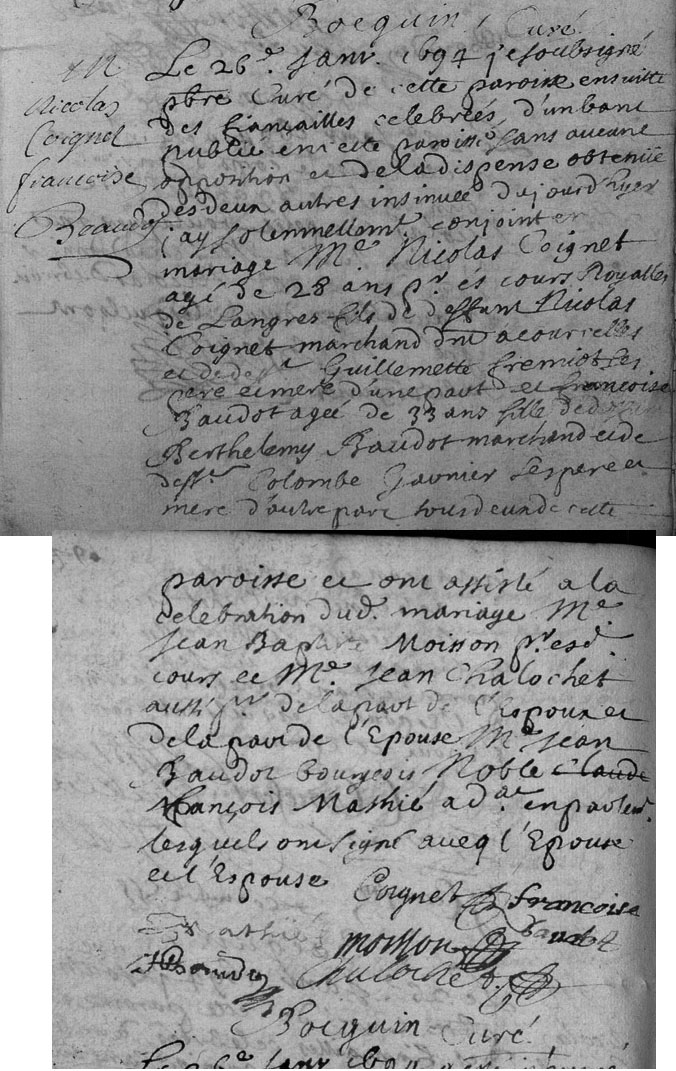 Bocquin Curé
M
Nicolas
Coignet
francoise
Beaudot
Le 26e. Janv. 1694 je soubsigné
pbre Curé de cette paroisse ensuitte
des fiançailles celebreés, d'un ban
publié en cette paroisse sans aucune
opposition et de la dispense obtenüe
des deux autres insinueé du jourd'hyer
j'ay solemnellemt. conjoint en
mariage Me Nicolas Coignet
agé de 28 ans pr. és cours Royalles
de Langres fils de deffunt Nicolas
Coignet marchand dmt a courcelles
et de deffte Guillemette fremiot ses
pere et mere d'une part et francoise
Baudot ageé de 33 ans fille de
Berthelemy Baudot marchand et de
deffte. Colombe Garnier ses pere et
mere d'autre part tous deux de cette
paroisse et ont assisté a la
celebration dud. mariage Me.
Jean Baptiste Moisson pr. esd.
cours et Me. Jean Chalochet
aussi pr. de la part de l'Espoux et
de la part de l'Epouse Me Jean
Baudot bourgeois Noble Claude
François Mathié adat. en parlemt.
lesquels ont signé aveq l'Epouse
et l'Espouse
Coignet francoise
Baudot
Mathié moisson
JBaudot Chalochet
Bocquin Curé
Le 26e Janv 1694